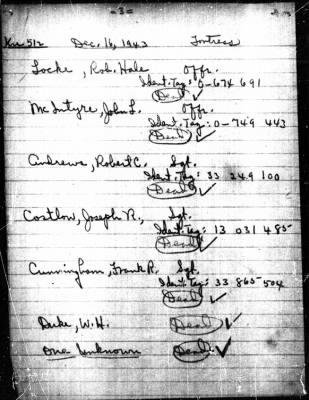 -3-
Ku 512 Dec. 16, 1943 Fortress
Locke, Rob. Hale Offr.
Ident. Tag: 0-674 691
Dead ✓
McIntyre, John L. Offr.
Ident. Tag: 0-749 443
Dead ✓
Andrews, Robert C. Sgt.
Ident. Tag: 33 249 100
Dead ✓
Costlow, Joseph R., Sgt.
Ident. Tag: 13 031 485
Dead ✓
Cunningham, Frank R. Sgt.
Ident. Tag: 33 865 504
Dead ✓
Duke, W. H. Dead ✓
One Unknown Dead. ✓